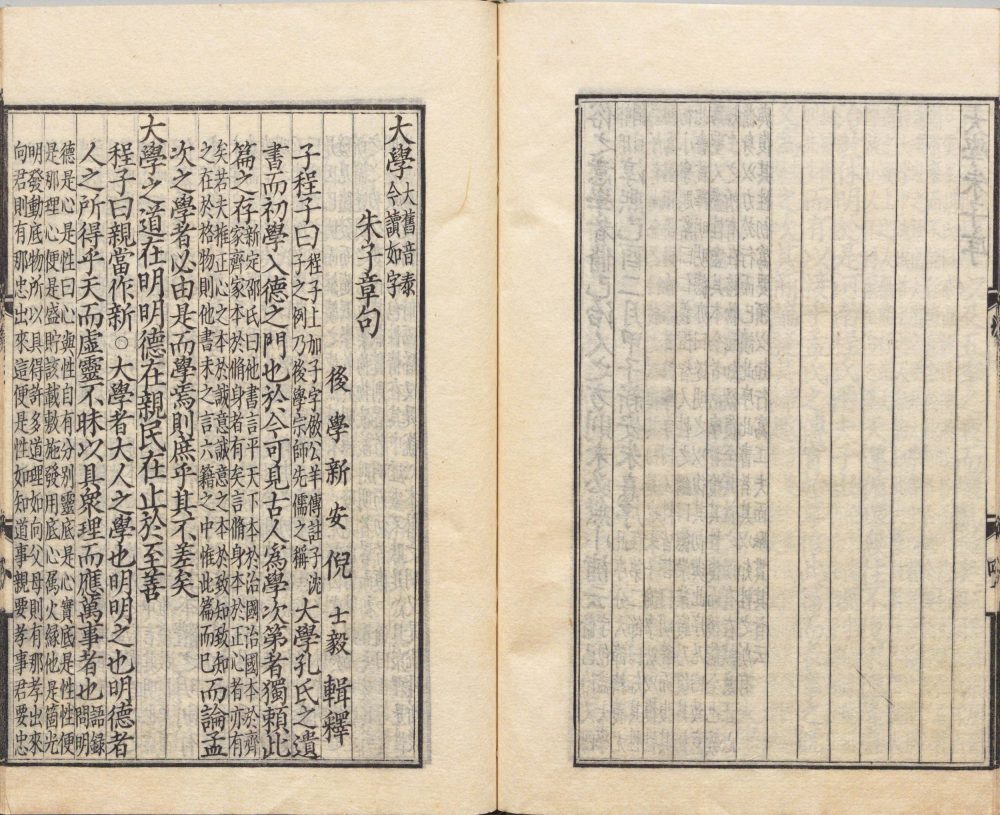 大學 大舊音泰今讀如字
朱子章句
後學新安倪士毅輯釋
子程子曰 程子上加子字倣公羊傳註子沈子之例乃後學宗師先儒之稱 大學孔氏之遺
書而初學入德之門也於今可見古人爲學次第者獨賴此
篇之存 新定邵氏曰他書言平天下本於治國治國本於齊家齊家本於脩身者有矣言脩身本於正心者亦有
矣若夫推正心之本於誠意誠意之本於致知致知之在於格物則他書未之言六籍之中惟此篇而已 而論孟
次之學者必由是而學焉則庶乎其不差矣
大學之道在明明德在親民在止於至善
程子曰親當作新○大學者大人之學也明明之也明德者
人之所得乎天而虛靈不昧以具衆理而應萬事者也 語錄問明
德是心是性曰心與性自有分別靈底是心實底是性性便
是那理心便是盛貯該載敷施發用底心屬火緣他是箇光
明發動底物所以具得許多道理如向父母則有那孝出來
向君則有那忠出來這便是性如知道事親要孝事君要忠